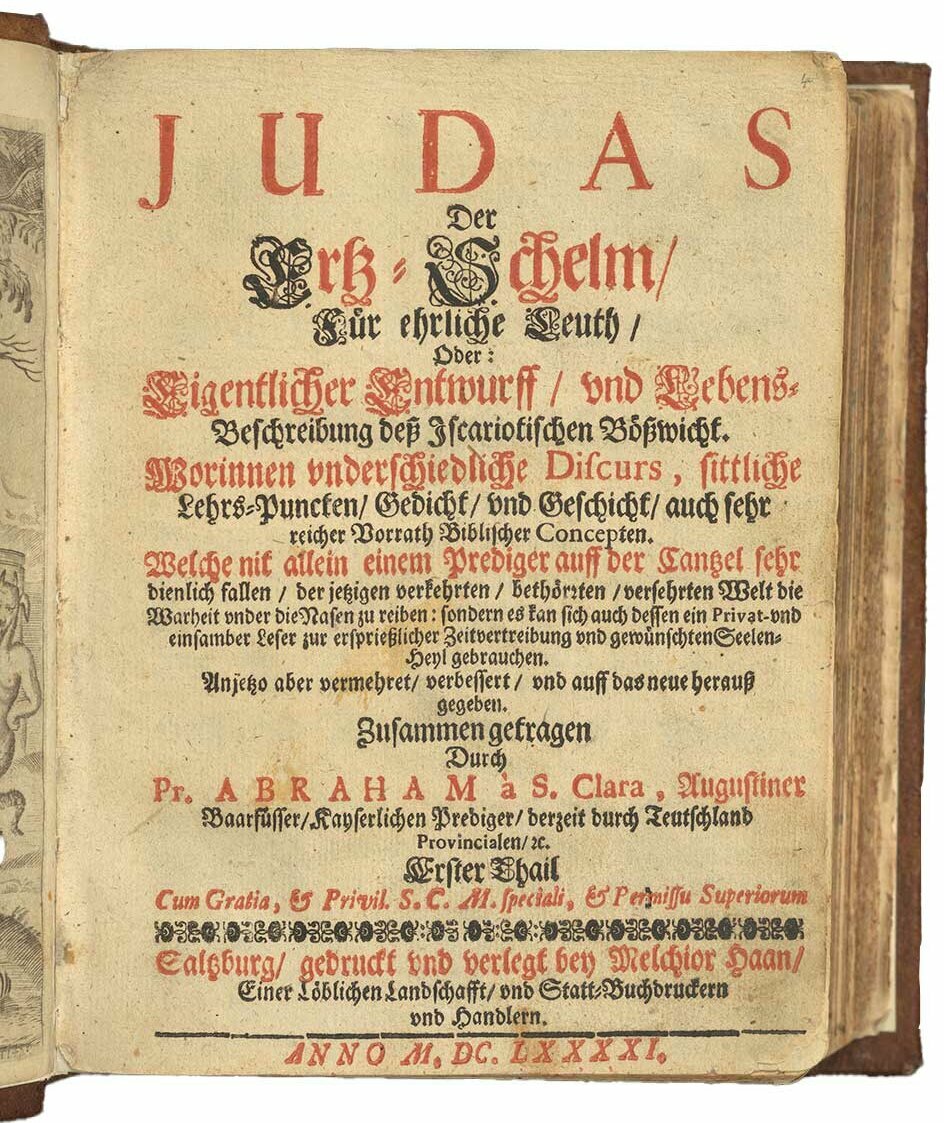 JUDAS
Der
Ertz-Schelm/
Für ehrliche Leuth/
Oder:
Eigentlicher Entwurff/ vnd Lebens-
Beschreibung deß Iscariotischen Bößwicht.
Worinnen vnderschiedliche Discurs, sittliche
Lehrs-Puncten/ Gedicht/ vnd Geschicht/ auch sehr
reicher Vorrath Biblischer Concepten.
Welche nit allein einem Prediger auff der Cantzel sehr
dienlich fallen/ der jetzigen verkehrten/ bethörten/ versehrten Welt die
Warheit vnder die Nasen zu reiben: sondern es kan sich auch dessen ein Privat-vnd
einsamber Leser zur ersprießlicher Zeitvertreibung vnd gewünschten Seelen-
Heyl gebrauchen.
Anjetzo aber vermehret/ verbessert/ vnd auff das neue herauß
gegeben.
Zusammen getragen
Durch
Pr. ABRAHAM à S. Clara, Augustiner
Baarfüsser/ Kayserlichen Prediger/ derzeit durch Teutschland
Provincialen/ ꝛc.
Erster Thail
Cum Gratia, & Privil. S. C. M. speciali, & Permissu Superiorum
Saltzburg/ gedruckt vnd verlegt bey Melchior Haan/
Einer Löblichen Landschafft/ vnd Statt-Buchdruckern
vnd Handlern.
ANNO M. DC. LXXXXI.